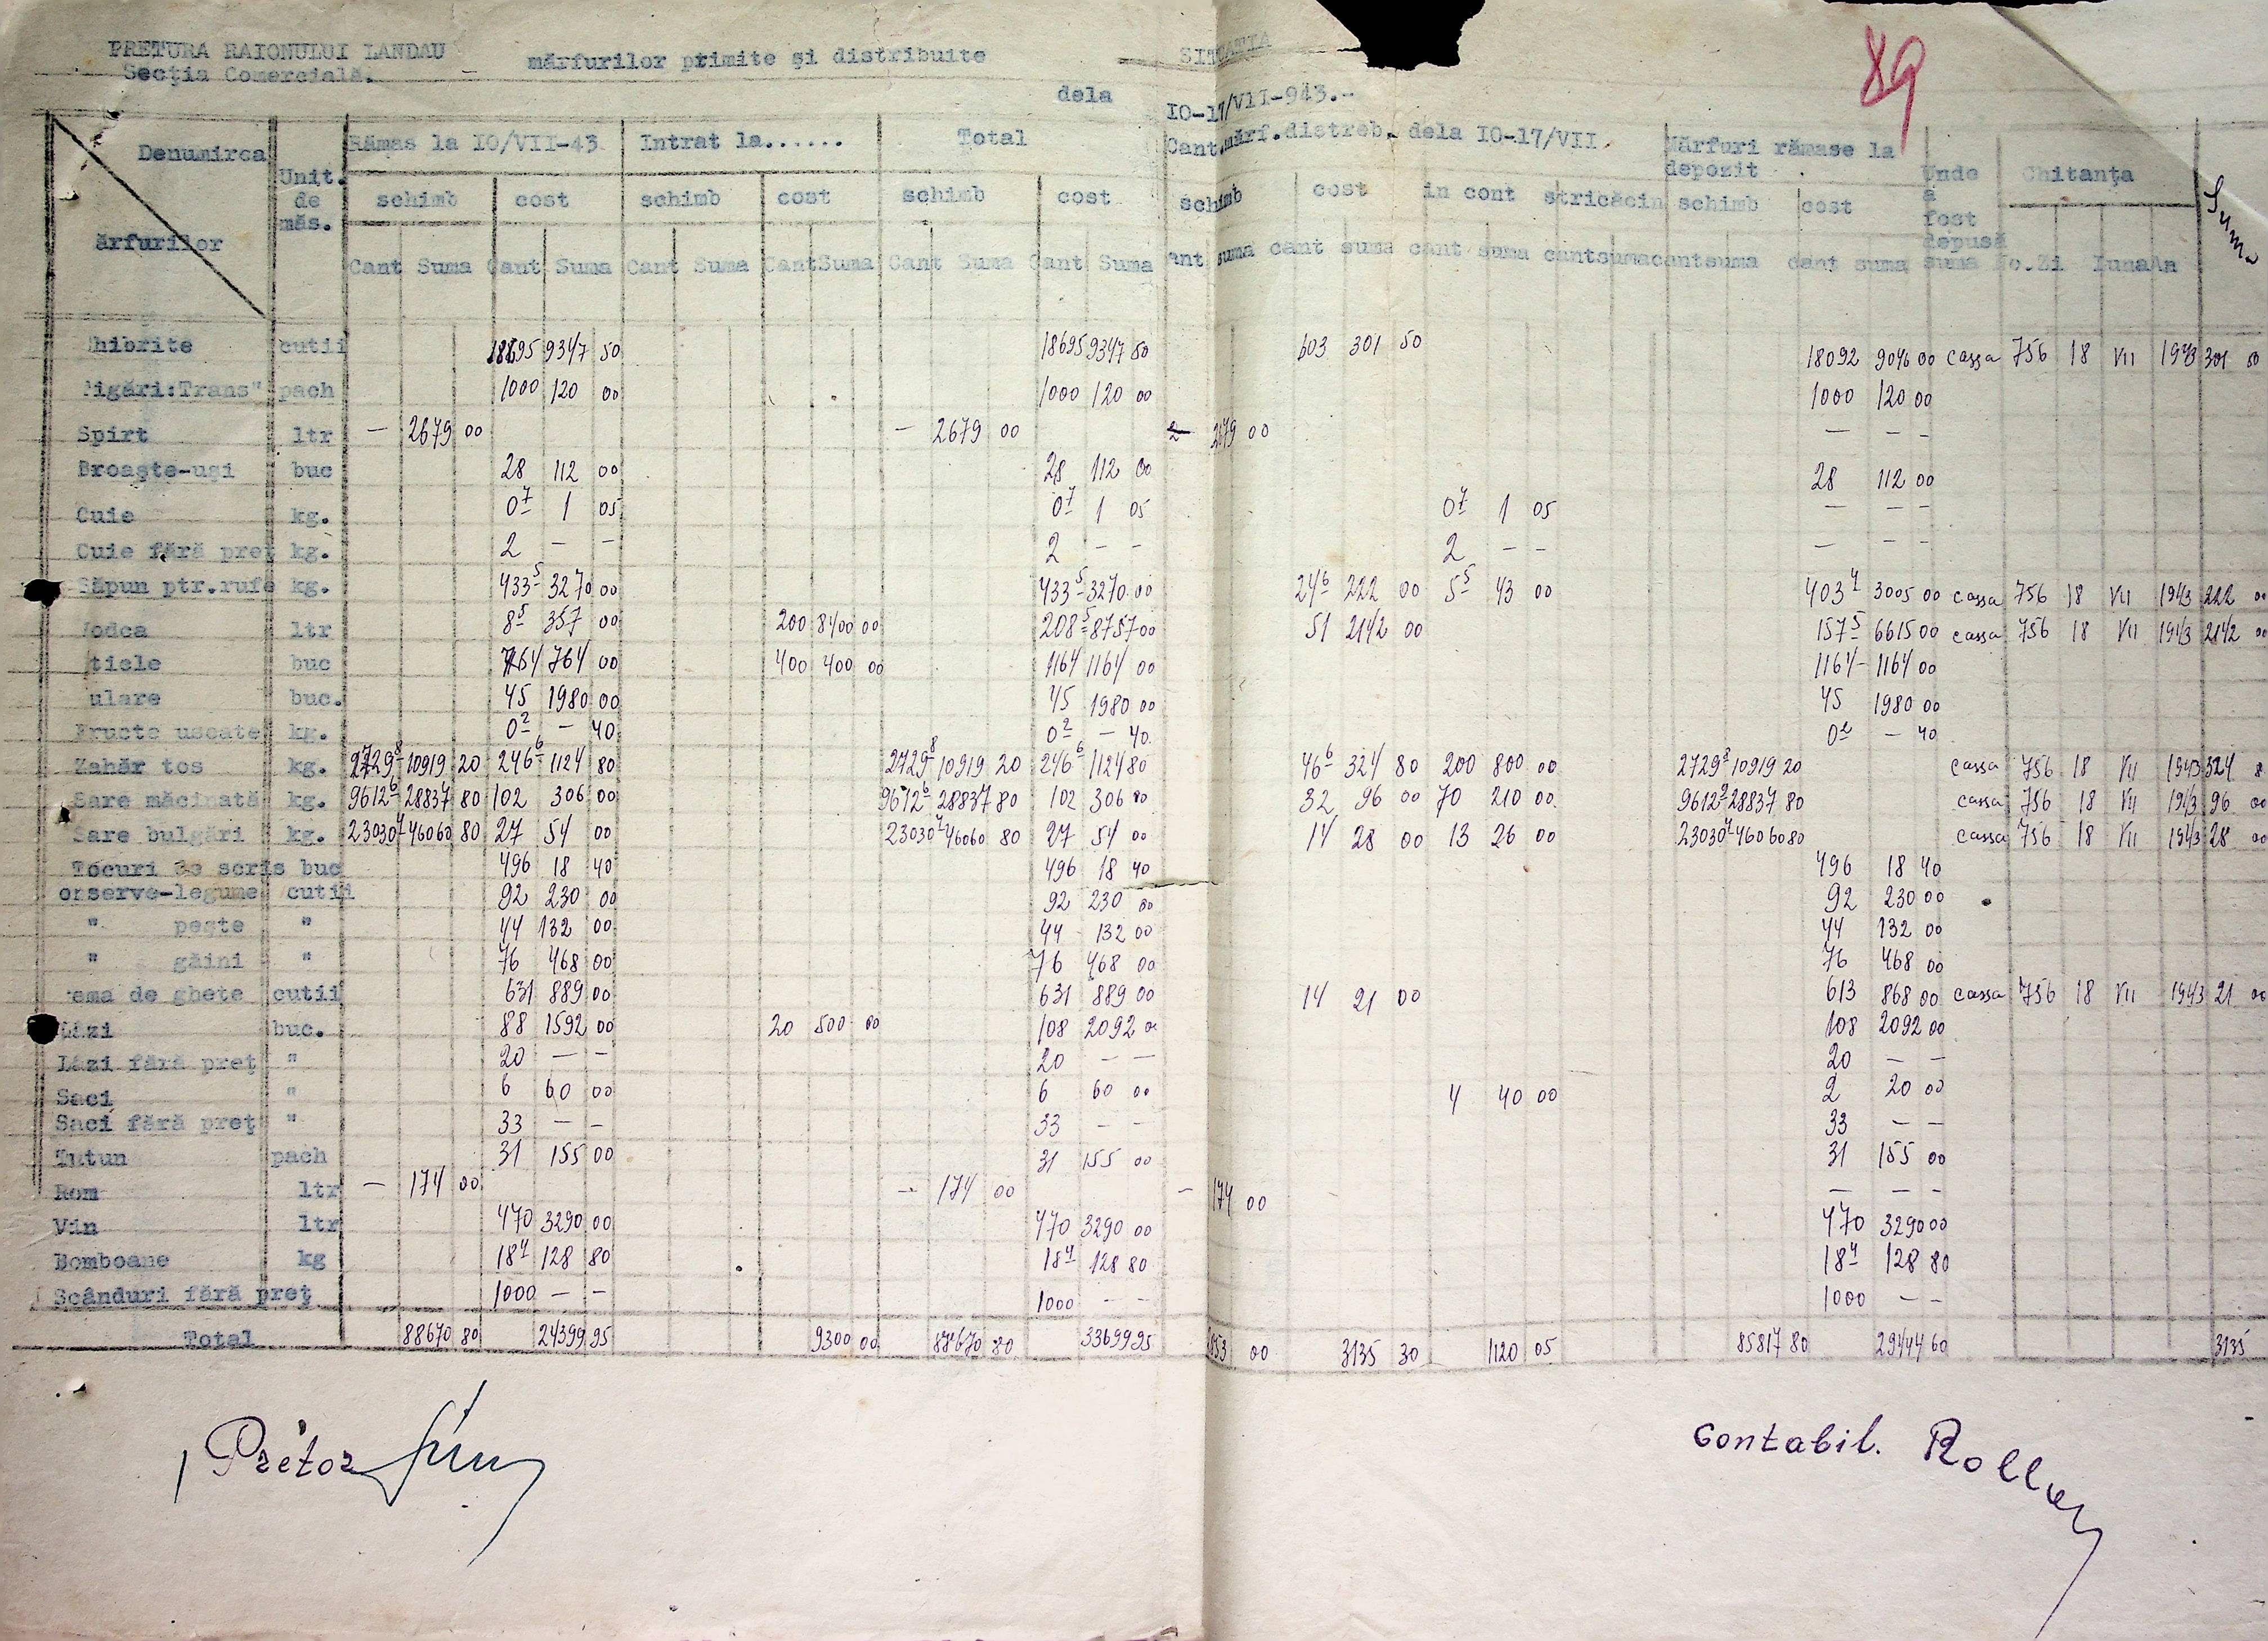 89
PRETURA RAIONULUI LANDAU
Secţia Comercială.
SITUAŢIA
mărfurilor primite şi distribuite
dela IO-17/VII-943.-
Denumirea ărfurilor
Unit. de măs.
Rămas la IO/VII-43 Intrat la...... Total Cant.mărf.distreb. dela IO-17/VII. Mărfuri rămase la depozit Unde a fost depusă suma Chitanţa Suma
schimb cost schimb cost schimb cost schimb cost in cont stricăcin schimb cost
Cant Suma Cant Suma Cant Suma Cant Suma Cant Suma Cant Suma ant suma cant suma cant suma cant suma cant suma cant suma No. Zi Luna An
hibrite cutii 18695 9347 50 18695 9347 50 603 301 50 18092 9046 00 cassa 756 18 VII 1943 301 50
igări:Trans" pach 1000 120 00 1000 120 00 1000 120 00
Spirt ltr — 2679 00 — 2679 00 2679 00 — — —
Broaşte-uşi buc 28 112 00 28 112 00 28 112 00
Cuie kg. 0 7 1 05 0 7 1 05 0 7 1 05 — — —
Cuie fără preţ kg. 2 — — 2 — — 2 — — — — —
Săpun ptr.rufe kg. 433 5 3270 00 433 5 3270 00 24 6 222 00 5 5 43 00 403 4 3005 00 cassa 756 18 VII 1943 222 00
odca ltr 8 5 357 00 200 8400 00 208 5 8757 00 51 2142 00 157 5 6615 00 cassa 756 18 VII 1943 2142 00
ticle buc 764 764 00 400 400 00 1164 1164 00 1164 1164 00
ulare buc. 45 1980 00 45 1980 00 45 1980 00
Fructe uscate kg. 0 2 — 40 0 2 — 40 0 2 — 40
Zahăr tos kg. 2729 8 10919 20 246 6 1124 80 2729 8 10919 20 246 6 1124 80 46 6 324 80 200 800 00 2729 8 10919 20 cassa 756 18 VII 1943 324 8
Sare măcinată kg. 9612 6 28837 80 102 306 00 9612 6 28837 80 102 306 00 32 96 00 70 210 00 9612 28837 80 cassa 756 18 VII 1943 96 00
Sare bulgări kg. 23030 4 46060 80 27 54 00 23030 4 46060 80 27 54 00 14 28 00 13 26 00 23030 4 46060 80 cassa 756 18 VII 1943 28 00
Tocuri de scris buc 496 18 40 496 18 40 496 18 40
onserve-legume cutii 92 230 00 92 230 00 92 230 00
" peşte " 44 132 00 44 132 00 44 132 00
" găini " 76 468 00 76 468 00 76 468 00
ema de ghete cutii 631 889 00 631 889 00 14 21 00 613 868 00 cassa 756 18 VII 1943 21 00
Lăzi buc. 88 1592 00 20 500 00 108 2092 00 108 2092 00
Lăzi fără preţ " 20 — — 20 — — 20 — —
Saci " 6 60 00 6 60 00 4 40 00 2 20 00
Saci fără preţ " 33 — — 33 — — 33 — —
Tutun pach 31 155 00 31 155 00 31 155 00
Rom ltr — 174 00 — 174 00 — 174 00 — — —
Vin ltr 470 3290 00 470 3290 00 470 3290 00
Bomboane kg 18 4 128 80 18 4 128 80 18 4 128 80
Scânduri fără preţ 1000 — — 1000 — — 1000 — —
Total 88670 80 24399 95 9300 00 88670 80 33699 95 2853 00 3135 30 1120 05 85817 80 29444 60 3135
Pretor
Contabil.